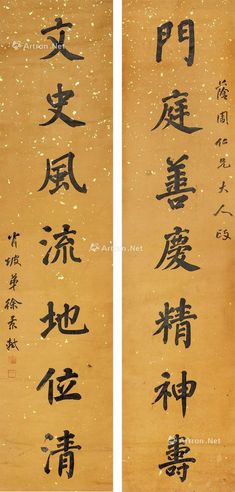 蔭周仁兄大人政
門庭善慶精神壽
文史風流地位清
肖坡弟徐景軾
Artron.Net
Artron.Net
Artron.Net
Artron.Net